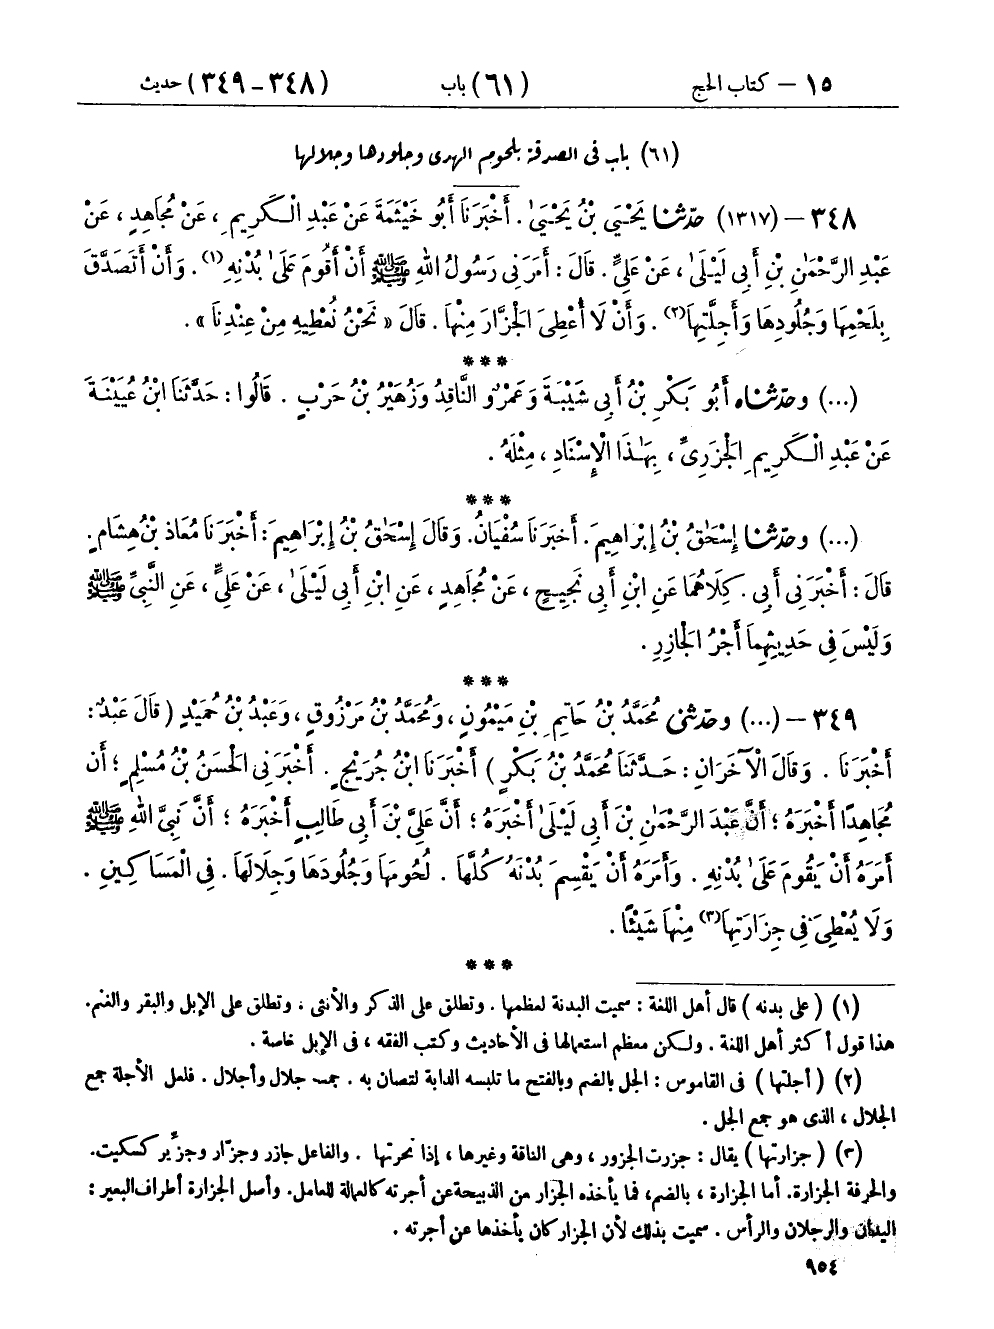 ١٥ — كتاب الحج (٦١) باب (٣٤٨-٣٤٩) حديث
(٦١) باب فى الصدقة بلحوم الهدى وجلودها وجلالها
٣٤٨ — (١٣١٧) حدّثنا يَحْيَىٰ بْنُ يَحْيَىٰ . أَخْبَرَنَا أَبُو خَيْثَمَةَ عَنْ عَبْدِ الْكَرِيمِ ، عَنْ مُجَاهِدٍ ، عَنْ
عَبْدِ الرَّحْمَٰنِ بْنِ أَبِى لَيْلَىٰ ، عَنْ عَلِىٍّ . قَالَ : أَمَرَنِى رَسُولُ اللهِ ﷺ أَنْ أَقُومَ عَلَىٰ بُدْنِهِ(١) . وَأَنْ أَتَصَدَّقَ
بِلَحْمِهَا وَجُلُودِهَا وَأَجِلَّتِهَا(٢) . وَأَنْ لَا أُعْطِىَ الْجَزَّارَ مِنْهَا . قَالَ « نَحْنُ نُعْطِيهِ مِنْ عِنْدِنَا » .
* * *
(...) وحدّثناه أَبُو بَكْرِ بْنُ أَبِى شَيْبَةَ وَعَمْرٌو النَّاقِدُ وَزُهَيْرُ بْنُ حَرْبٍ . قَالُوا : حَدَّثَنَا ابْنُ عُيَيْنَةَ
عَنْ عَبْدِ الْكَرِيمِ الْجَزَرِىِّ ، بِهَٰذَا الْإِسْنَادِ ، مِثْلَهُ .
* * *
(...) وحدّثنا إِسْحَٰقُ بْنُ إِبْرَاهِيمَ . أَخْبَرَنَا سُفْيَانُ. وَقَالَ إِسْحَٰقُ بْنُ إِبْرَاهِيمَ : أَخْبَرَنَا مُعَاذُ بْنُ هِشَامٍ.
قَالَ : أَخْبَرَنِى أَبِى . كِلَاهُمَا عَنِ ابْنِ أَبِى نَجِيحٍ ، عَنْ مُجَاهِدٍ ، عَنِ ابْنِ أَبِى لَيْلَىٰ ، عَنْ عَلِىٍّ ، عَنِ النَّبِىِّ ﷺ
وَلَيْسَ فِى حَدِيثِهِمَا أَجْرُ الْجَازِرِ .
* * *
٣٤٩ — (...) وحدّثنى مُحَمَّدُ بْنُ حَاتِمِ بْنِ مَيْمُونٍ ، وَمُحَمَّدُ بْنُ مَرْزُوقٍ ، وَعَبْدُ بْنُ حُمَيْدٍ ( قَالَ عَبْدٌ :
أَخْبَرَنَا . وَقَالَ الْآخَرَانِ : حَدَّثَنَا مُحَمَّدُ بْنُ بَكْرٍ ) أَخْبَرَنَا ابْنُ جُرَيْجٍ . أَخْبَرَنِى الْحَسَنُ بْنُ مُسْلِمٍ ؛ أَنَّ
مُجَاهِدًا أَخْبَرَهُ ؛ أَنَّ عَبْدَ الرَّحْمَٰنِ بْنَ أَبِى لَيْلَىٰ أَخْبَرَهُ ؛ أَنَّ عَلِىَّ بْنَ أَبِى طَالِبٍ أَخْبَرَهُ ؛ أَنَّ نَبِىَّ اللهِ ﷺ
أَمَرَهُ أَنْ يَقُومَ عَلَىٰ بُدْنِهِ . وَأَمَرَهُ أَنْ يَقْسِمَ بُدْنَهُ كُلَّهَا . لُحُومَهَا وَجُلُودَهَا وَجِلَالَهَا . فِى الْمَسَاكِينِ .
وَلَا يُعْطِىَ فِى جِزَارَتِهَا(٣) مِنْهَا شَيْئًا .
* * *
(١) ( على بدنه ) قال أهل اللغة : سميت البدنة لعظمها . وتطلق على الذكر والأنثى ، وتطلق على الإبل والبقر والغنم.
هذا قول أكثر أهل اللغة . ولكن معظم استعمالها فى الأحاديث وكتب الفقه ، فى الإبل خاصة .
(٢) ( أجلتها ) فى القاموس : الجل بالضم وبالفتح ما تلبسه الدابة لتصان به . جمعه جلال وأجلال . فلعل الأجلة جمع
الجلال ، الذى هو جمع الجل .
(٣) ( جزارتها ) يقال : جزرت الجزور ، وهى الناقة وغيرها ، إذا نحرتها . والفاعل جازر وجزّار وجزّير كسكيت.
والحرفة الجزارة. أما الجزارة ، بالضم، فما يأخذه الجزار من الذبيحة عن أجرته كالعمالة للعامل. وأصل الجزارة أطراف البعير :
اليدان والرجلان والرأس . سميت بذلك لأن الجزار كان يأخذها عن أجرته .
٩٥٤